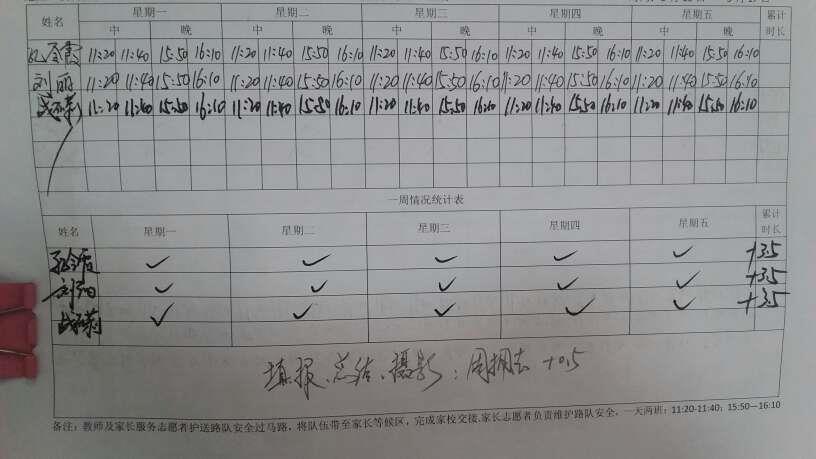 姓名 星期一 星期二 星期三 星期四 星期五 累计时长
中 晚 中 晚 中 晚 中 晚 中 晚
11:20 11:40 15:50 16:10 11:20 11:40 15:50 16:10 11:20 11:40 15:50 16:10 11:20 11:40 15:50 16:10 11:20 11:40 15:50 16:10
刘丽 11:20 11:40 15:50 16:10 11:20 11:40 15:50 16:10 11:20 11:40 15:50 16:10 11:20 11:40 15:50 16:10 11:20 11:40 15:50 16:10
11:20 11:40 15:50 16:10 11:20 11:40 15:50 16:10 11:20 11:40 15:50 16:10 11:20 11:40 15:50 16:10 11:20 11:40 15:50 16:10
一周情况统计表
姓名 星期一 星期二 星期三 星期四 星期五 累计时长
✓ ✓ ✓ ✓ ✓ +3.5
✓ ✓ ✓ ✓ ✓ +3.5
✓ ✓ ✓ ✓ ✓ +3.5
填报、总结、摄影：周拥去 +0.5
备注：教师及家长服务志愿者护送路队安全过马路，将队伍带至家长等候区，完成家校交接.家长志愿者负责维护路队安全，一天两班：11:20-11:40；15:50—16:10